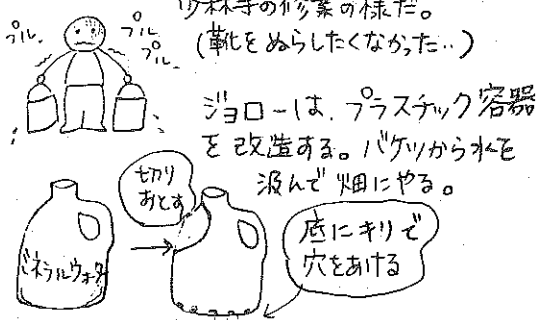 少林寺の修業の様だ。
プル、
プル
プル、
(靴をぬらしたくなかった‥)
ジョローは、プラスチック容器
を改造する。バケツから水を
汲んで畑にやる。
切り
おとす
ミネラルウォーター
底にキリで
穴をあける